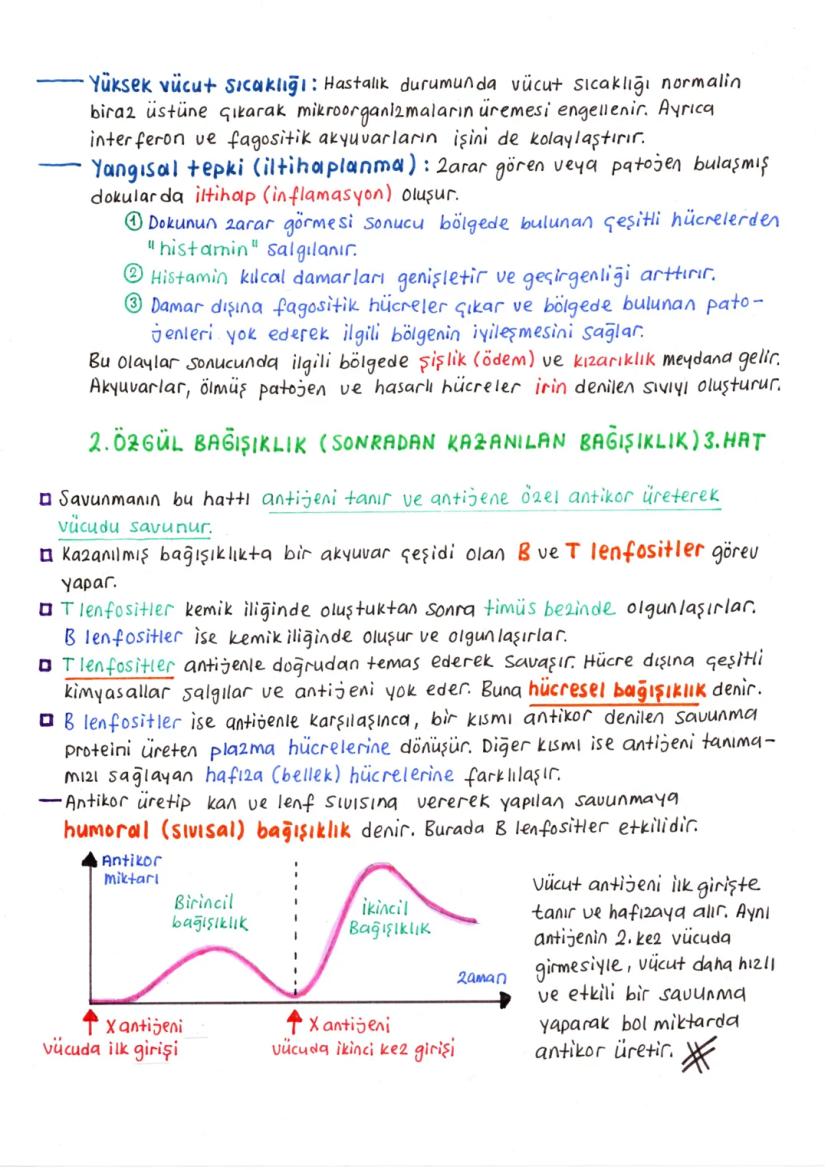 Yüksek vücut sıcaklığı : Hastalık durumunda vücut sıcaklığı normalin
biraz üstüne çıkarak mikroorganizmaların üremesi engellenir. Ayrıca
interferon ve fagositik akyuvarların işini de kolaylaştırır.
Yangısal tepki (iltihaplanma) : Zarar gören veya patojen bulaşmış
dokularda iltihap (inflamasyon) oluşur.
① Dokunun zarar görmesi sonucu bölgede bulunan çeşitli hücrelerden
"histamin" salgılanır.
② Histamin kılcal damarları genişletir ve geçirgenliği arttırır.
③ Damar dışına fagositik hücreler çıkar ve bölgede bulunan pato-
jenleri yok ederek ilgili bölgenin iyileşmesini sağlar.
Bu olaylar sonucunda ilgili bölgede şişlik (ödem) ve kızarıklık meydana gelir.
Akyuvarlar, ölmüş patojen ve hasarlı hücreler irin denilen sıvıyı oluşturur.
2. ÖZGÜL BAĞIŞIKLIK (SONRADAN KAZANILAN BAĞIŞIKLIK) 3. HAT
Savunmanın bu hattı antijeni tanır ve antijene özel antikor üreterek
vücudu savunur.
Kazanılmış bağışıklıkta bir akyuvar çeşidi olan B ve T lenfositler görev
yapar.
T lenfositler kemik iliğinde oluştuktan sonra timüs bezinde olgunlaşırlar.
B lenfositler ise kemik iliğinde oluşur ve olgunlaşırlar.
T lenfositler antijenle doğrudan temas ederek savaşır. Hücre dışına çeşitli
kimyasallar salgılar ve antijeni yok eder. Buna hücresel bağışıklık denir.
B lenfositler ise antijenle karşılaşınca, bir kısmı antikor denilen savunma
proteini üreten plazma hücrelerine dönüşür. Diğer kısmı ise antijeni tanıma-
mızı sağlayan hafıza (bellek) hücrelerine farklılaşır.
Antikor üretip kan ve lenf sıvısına vererek yapılan savunmaya
humoral (sıvısal) bağışıklık denir. Burada B lenfositler etkilidir.
Antikor
miktarı
Birincil
bağışıklık
İkincil
Bağışıklık
zaman
X antijeni
vücuda ilk girişi
X antijeni
vücuda ikinci kez girişi
Vücut antijeni ilk girişte
tanır ve hafızaya alır. Aynı
antijenin 2. kez vücuda
girmesiyle, vücut daha hızlı
ve etkili bir savunma
yaparak bol miktarda
antikor üretir.